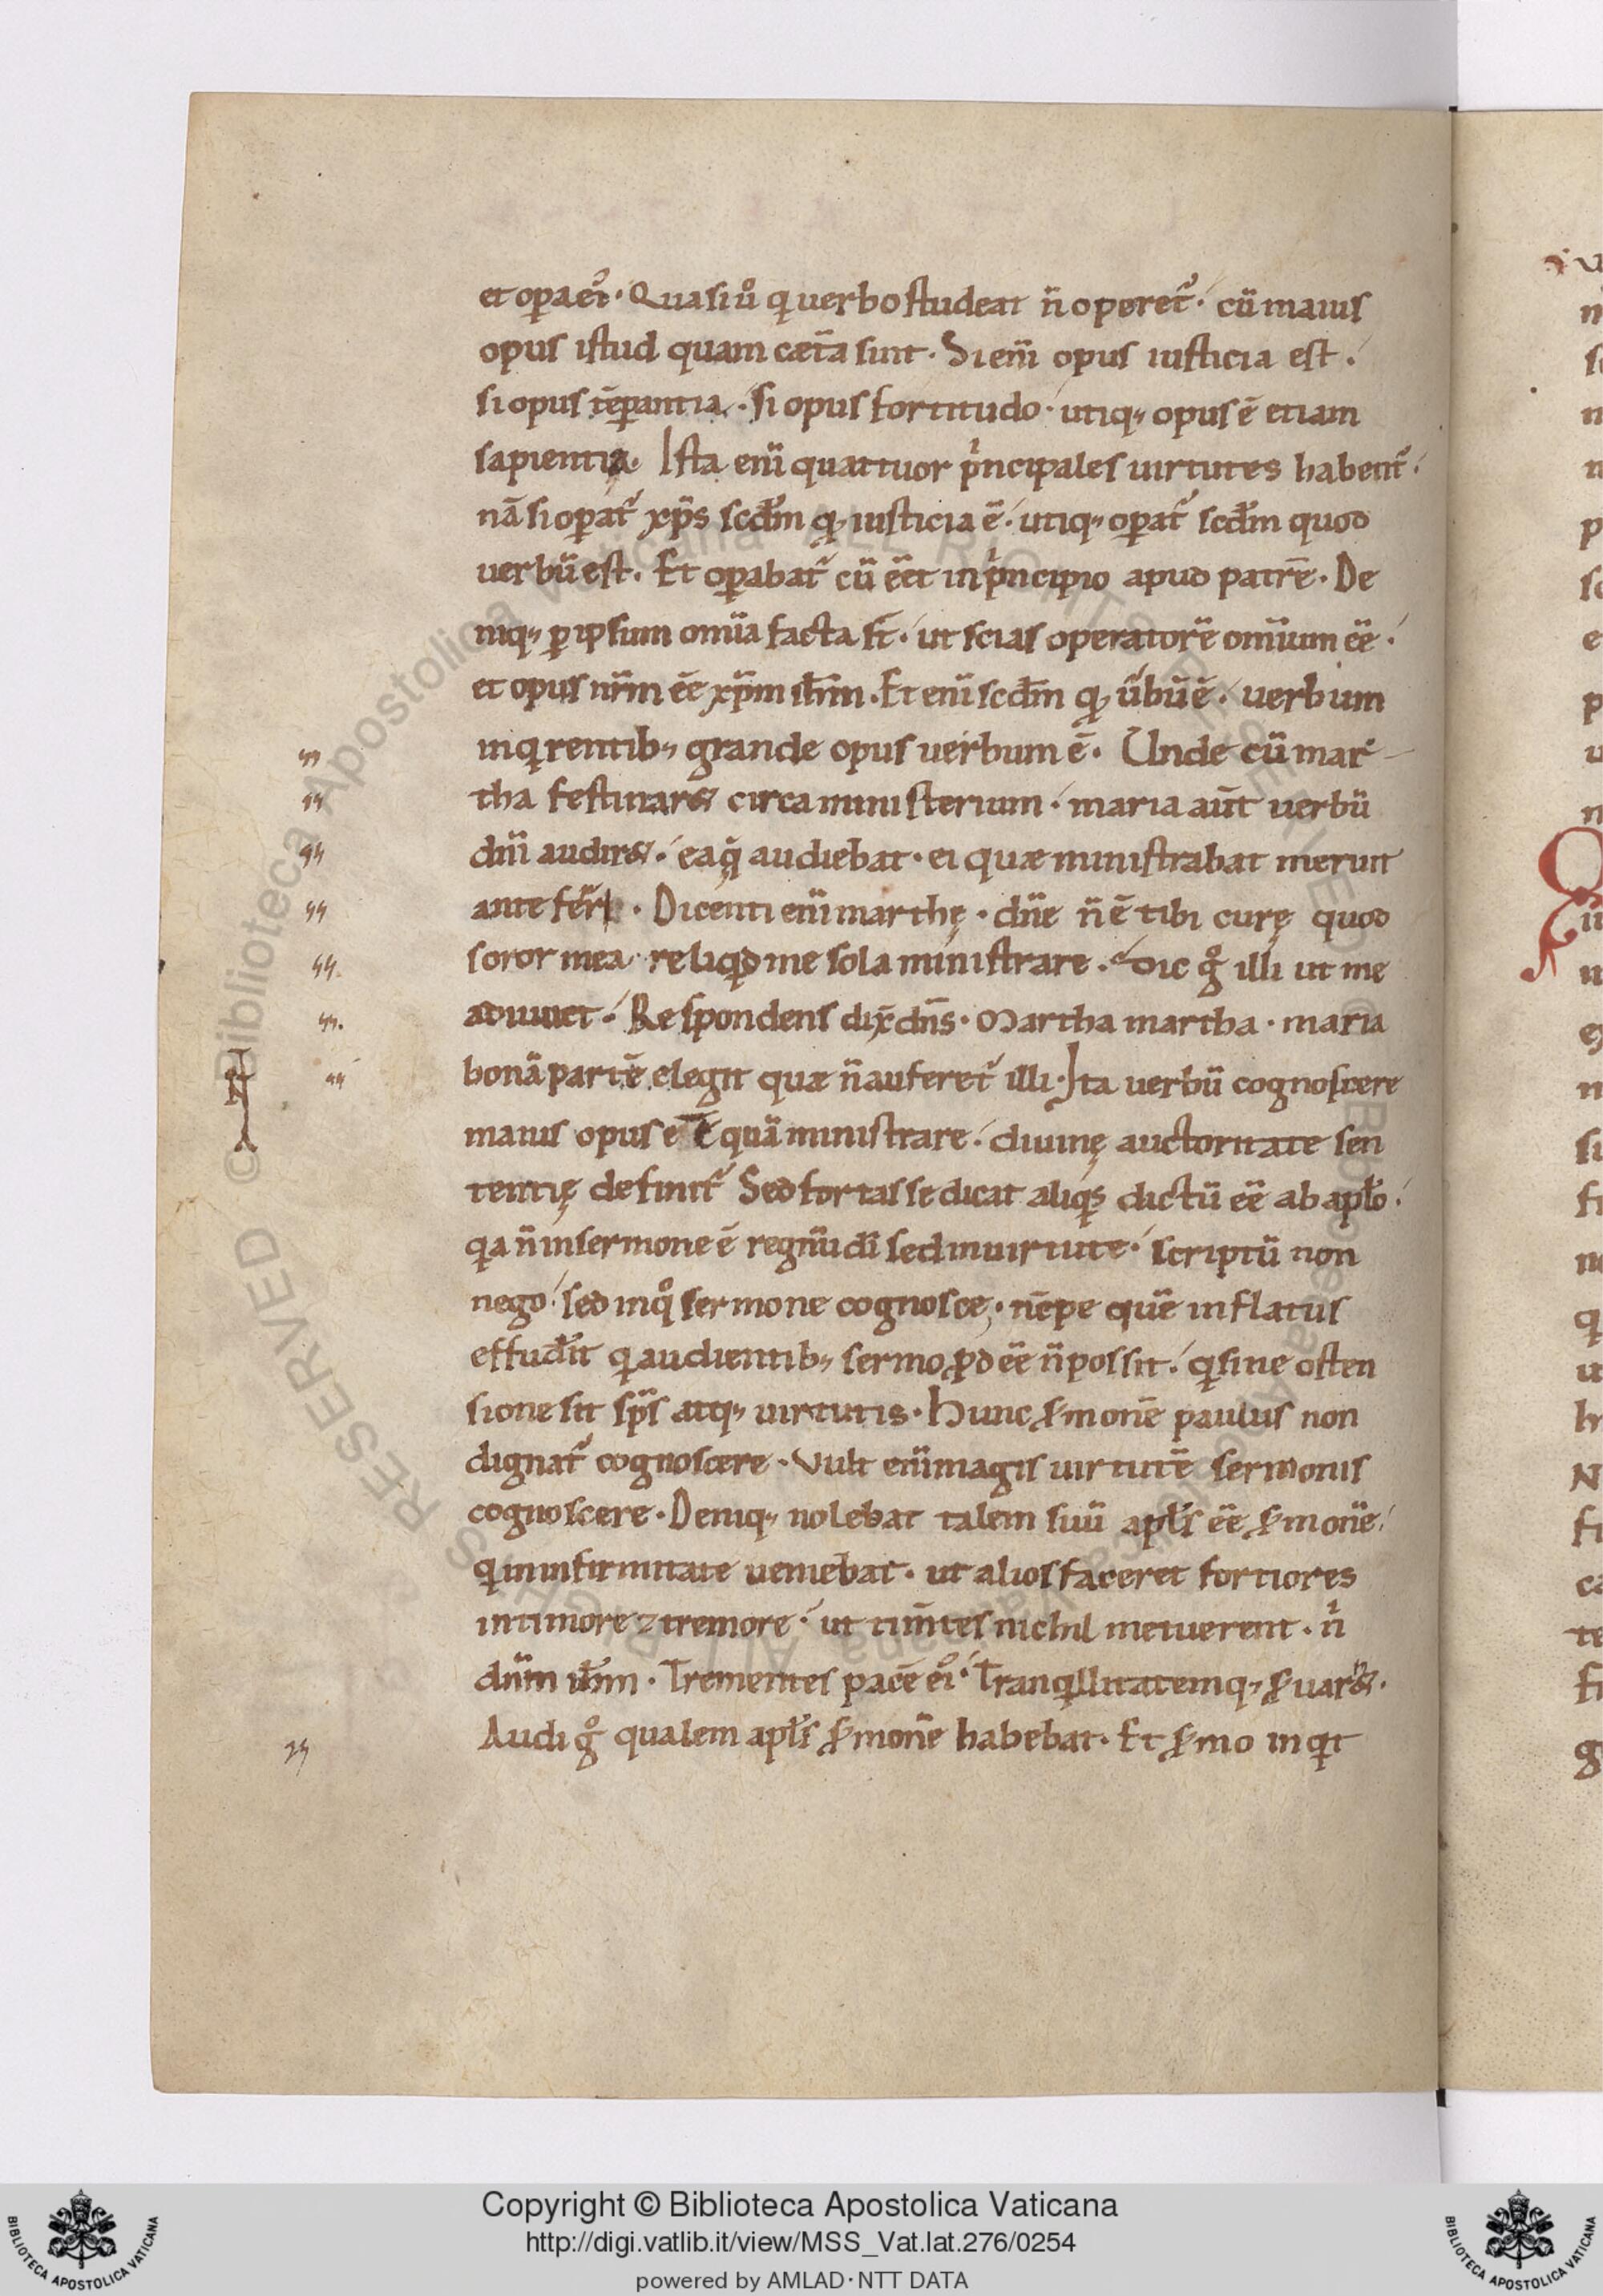 et oꝑa eiꝰ. Quasi uͦ qͥ uerbo studeat n̄ operet᷑. cū maius
opus istud quam cæt̄a sunt. Si eni̅ opus iusticia est.
si opus tēꝑantia. si opus fortitudo. utiq; opus ē etiam
sapientia. Ista eni̅ quattuor pͥncipales uirtutes habent᷑.
nā si oꝑat᷑ xp̄s scd̄m qđ iusticia ē. utiq; oꝑat᷑ scd̄m quod
uerbū est. Et oꝑabat᷑ cū ēet in pͥncipio apud patrē. De
niq; ꝑ ipsum om̄ia facta st̄. ut scias operatorē om̄ium ēē.
et opus nr̄m ēē xp̄m ih̄m. Et eni̅ scd̄m qđ ūbū ē. uerbum
inqͥrentib; grande opus uerbum ē. Unde cū mar
tha festinar& circa ministerium. maria aūt uerbū
dn̄i audir&. ea q̄ audiebat. ei quæ ministrabat meruit
anteferri. Dicenti eni̅ marthę. dn̄e n̄ ē tibi curę quod
soror mea reliqͥd me sola ministrare. Dic gͦ illi ut me
adiuuet. Respondens dix̄ dn̄s. Martha martha. maria
bonā partē elegit quæ n̄ auferet᷑ illi. Ita uerbū cognoscere
maius opus e ē quā ministrare. diuinę auctoritate sen
tentię definit᷑ Sed fortasse dicat aliqͥs dictū ēē ab apl̄o.
qͥa n̄ in sermone ē regnū dī sed in uirtute. scriptū non
nego. sed in qͦ sermone cognosce. nēpe quē inflatus
effuderit qͥ audientib; sermo ꝓd ēē n̄ possit. qͥ sine osten
sione sit sp̄s atq; uirtutis. Hunc ẜmonē paulus non
dignat᷑ cognoscere. Vult eni̅ magis uirtutē sermonis
cognoscere. Deniq; nolebat talem suū apl̄s ēē ẜmonē.
qͥ in infirmitate ueniebat. ut alios faceret fortiores
in timore ⁊ tremore. ut tim̄tes nichil metuerent. nͥ
dn̄m ih̄m. Trementes pacē eiꝰ. Tranqͥllitatemq; ẜuar&.
Audi gͦ qualem apl̄s ẜmonē habebat. Et ẜmo inqͥt
Copyright © Biblioteca Apostolica Vaticana
http://digi.vatlib.it/view/MSS_Vat.lat.276/0254
powered by AMLAD·NTT DATA